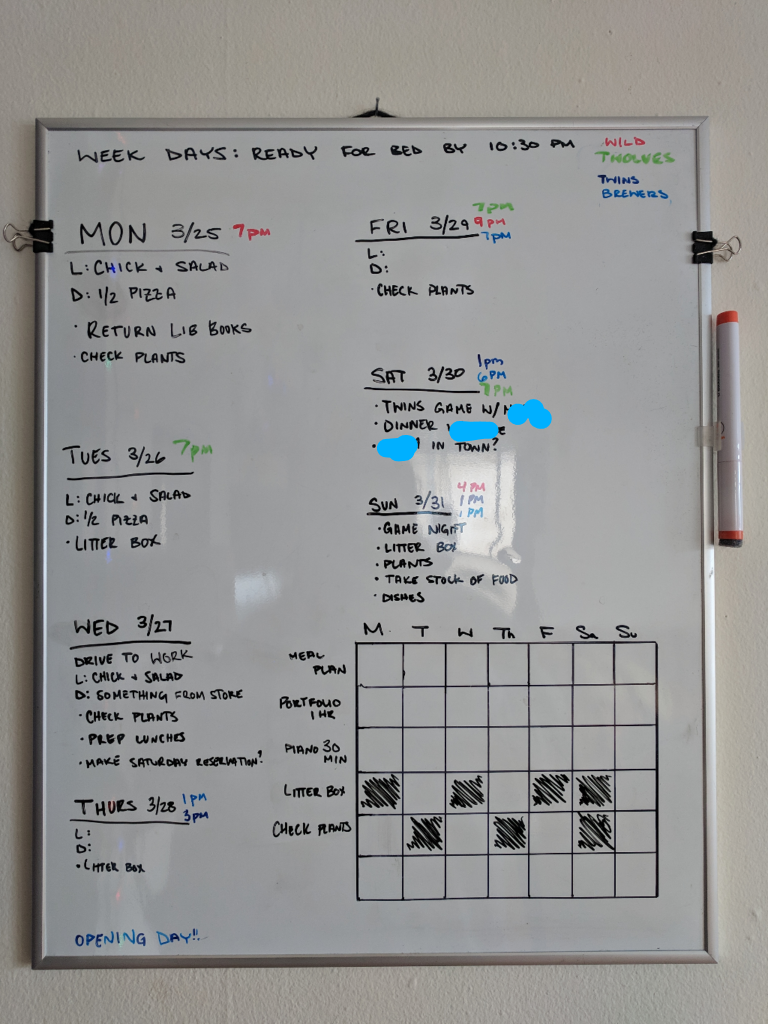 WEEK DAYS: READY FOR BED BY 10:30 PM
WILD
TWOLVES
TWINS
BREWERS
MON 3/25 7PM
L: CHICK + SALAD
D: 1/2 PIZZA
· RETURN LIB BOOKS
· CHECK PLANTS
TUES 3/26 7pm
L: CHICK + SALAD
D: 1/2 PIZZA
· LITTER BOX
WED 3/27
DRIVE TO WORK
L: CHICK + SALAD
D: SOMETHING FROM STORE
· CHECK PLANTS
· PREP LUNCHES
· MAKE SATURDAY RESERVATION?
THURS 3/28
1PM
3PM
L:
D:
· LITTER BOX
OPENING DAY!!
7pm
FRI 3/29 9PM
7PM
L:
D:
· CHECK PLANTS
1pm
SAT 3/30 6PM
7PM
· TWINS GAME W/
· DINNER
· IN TOWN?
4PM
SUN 3/31 1PM
1PM
· GAME NIGHT
· LITTER BOX
· PLANTS
· TAKE STOCK OF FOOD
· DISHES
M T W Th F Sa Su
MEAL
PLAN
PORTFOLIO
1 HR
PIANO 30
MIN
LITTER BOX
CHECK PLANTS